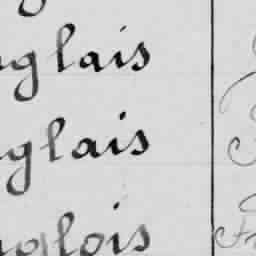 nglais
nglais
nglois